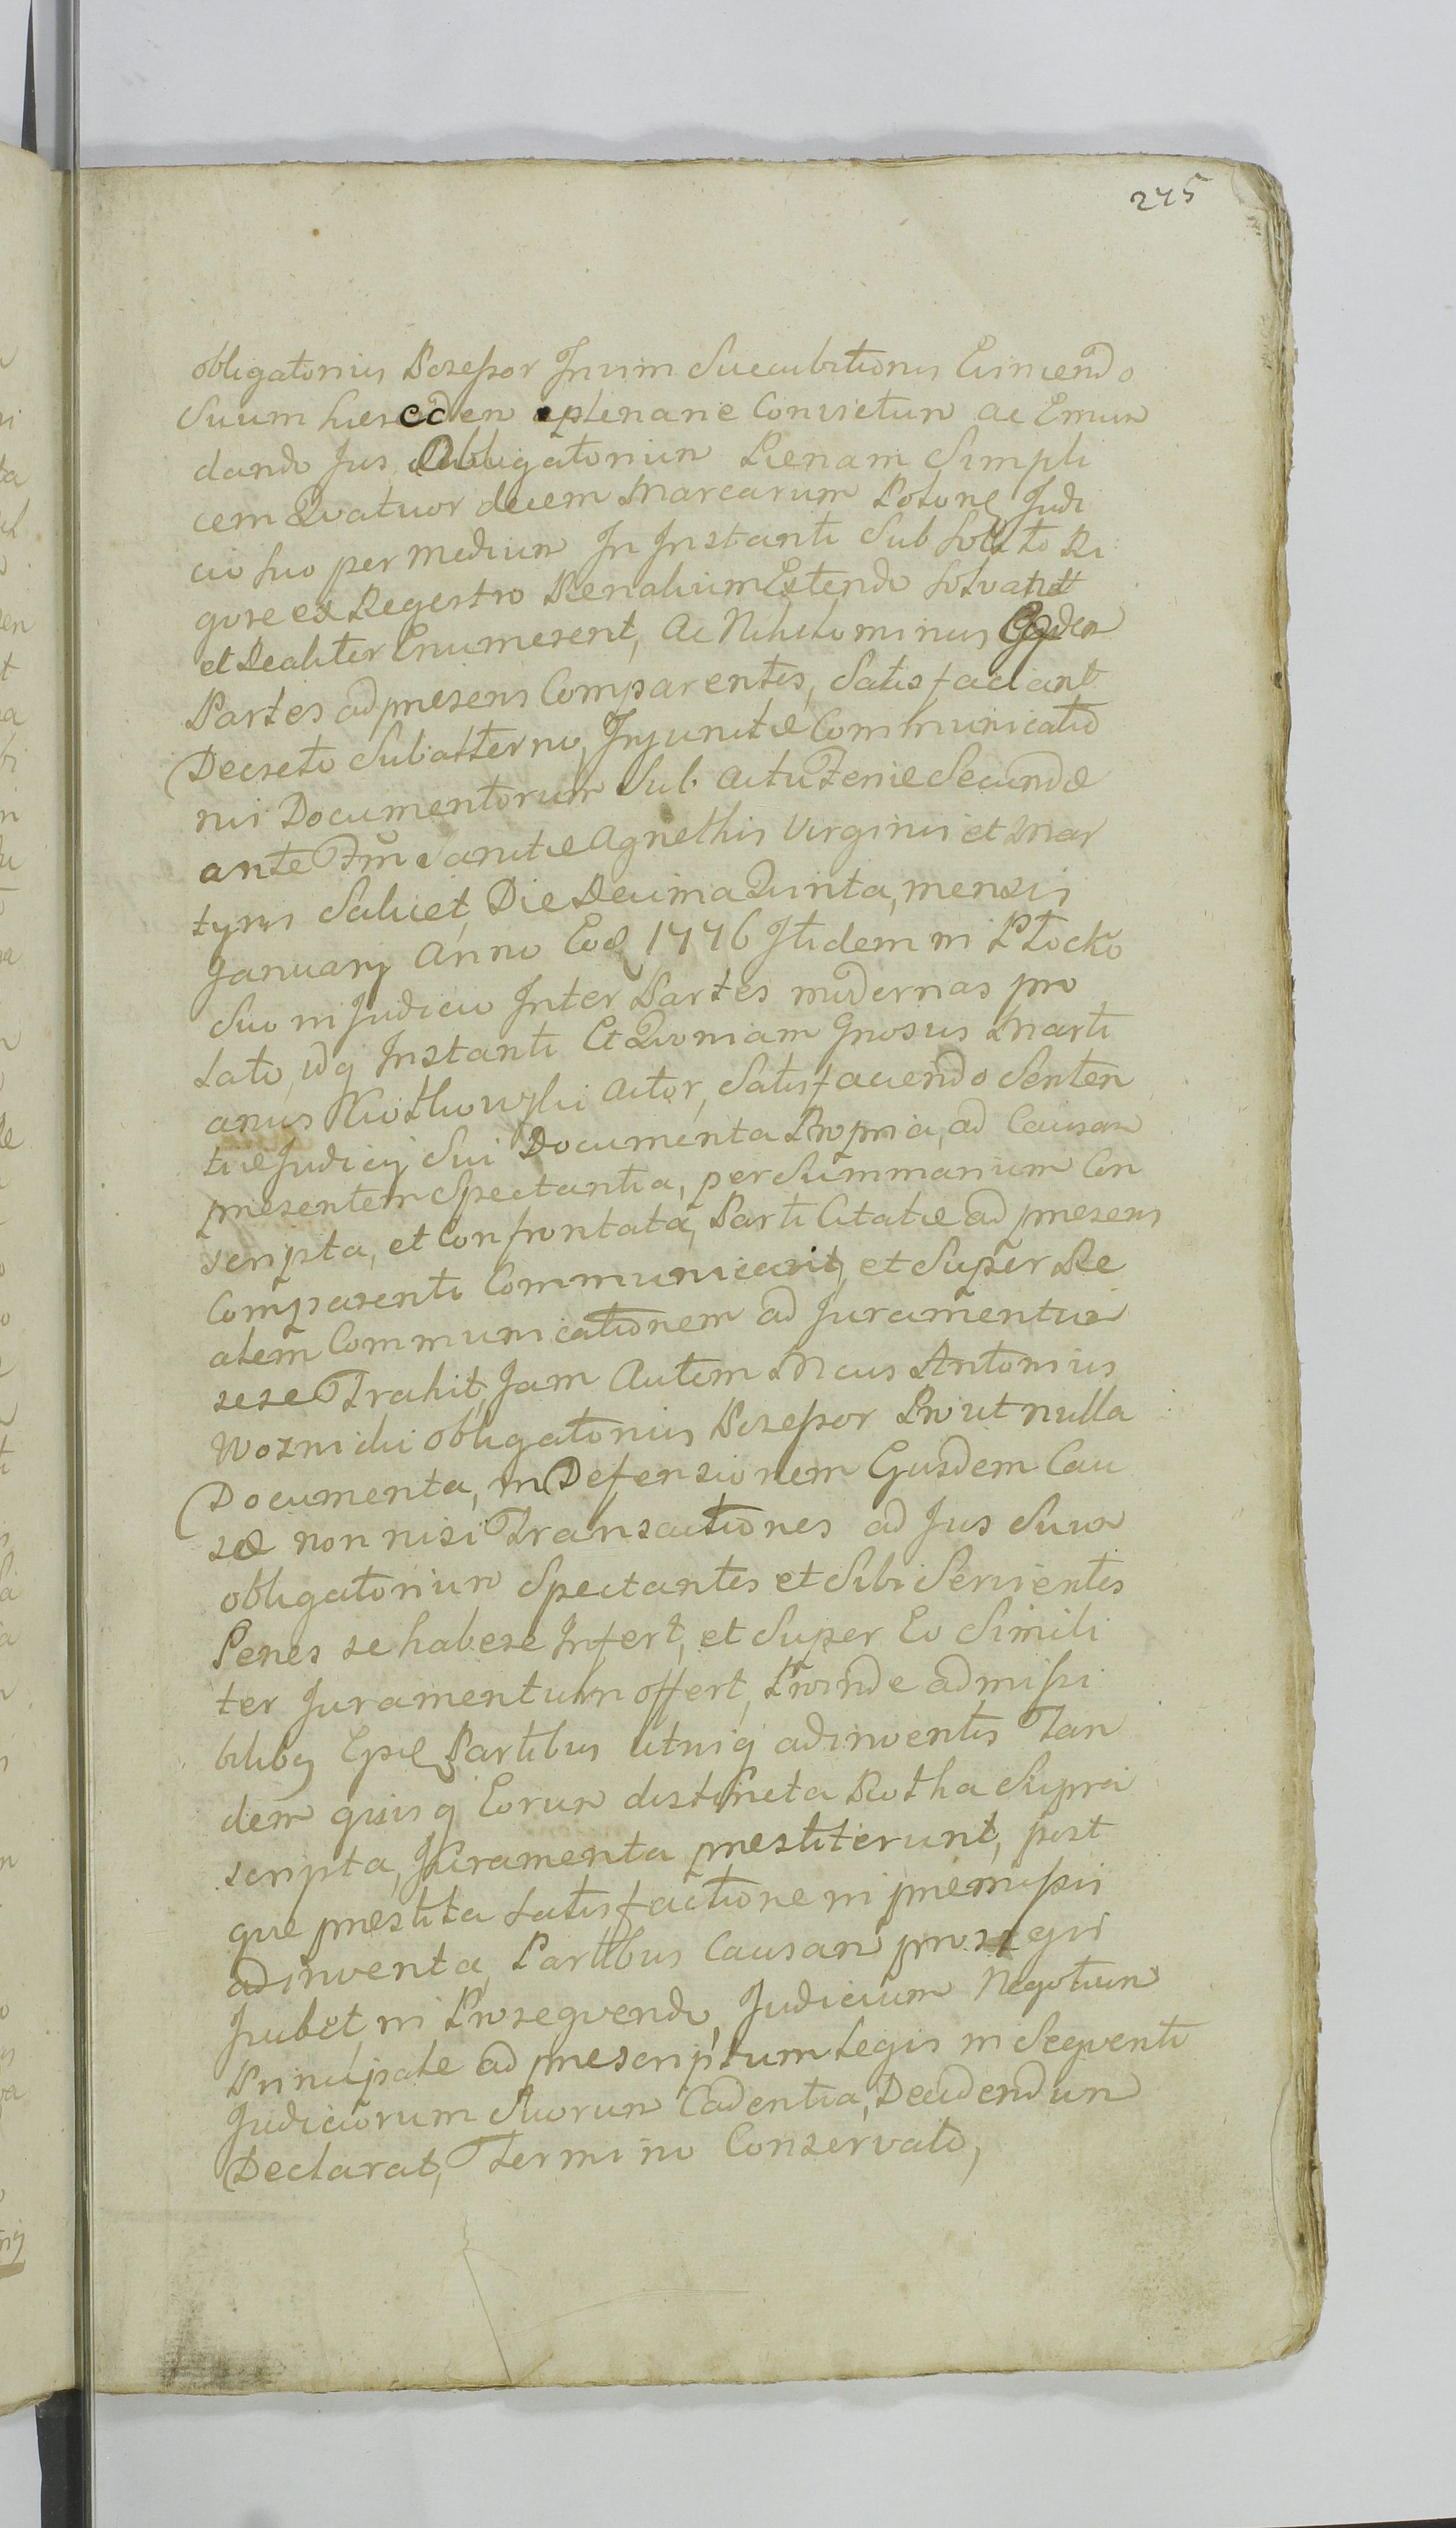 275
obligatorius Posessor In vim Succubitionis Eximendo
Suum hæredem plenarie Convictum ac Emun
dando Jus Obligatorium Pænam Simpli
cem Quatuor decem Marcarum Polonę Judi
cio suo per medium In Instanti Sub Solito Ri
gore ex Regestro Pænalium Extendo Solvant
et Realiter Enumerent, ac Nihilominus Eædem
Partes ad præsens Comparentes, Satisfaciant
Decreto Subalterno, Injunctæ Communicatio
nis Documentorum Sub actu Feriæ Secundæ
ante Ftm Sanctæ Agnethis Virginis et Mar
tyris Scilicet, Die Decima Quinta, mensis
Januarij Anno Eodę 1776 Itidem in Płocko
Suo in Judicio Inter Partes modernas pro
lato, idq Instanti Et Quoniam Gnosus Marti
anus Kiełkowski actor, Satisfaciendo Senten
tiæ Judicij Sui Documenta Propria, ad Causam
præsentem Spectantia, per Summarium Con
scripta, et Confrontata, Parti Citatæ ad præsens
Comparenti Communicavit, et Super Re
alem Communicationem ad Juramentum
sese Trahit, Jam Autem Mcus Antonius
Woznicki obligatorius Posessor Prout nulla
Documenta, in Defensionem Ejusdem Cau
sæ non nisi Transactiones ad Jus Suum
obligatorium Spectantes et Sibi Servientes
Penes se habere Infert, et Super Eo Simili
ter Juramentum offert, Proinde admissi
bilibq Ipsę Partibus utriq adinventis Tan
dem quisq Eorum distincta Rotha Supra
scripta, Juramenta præstiterunt, post
quæ præstita Satisfactione in præmissis
adinventa, Partibus Causam prosequi
Jubet, in Prosequendo, Judicium Negotium
Principale ad præscriptum Legis in Sequenti
Judiciorum Suorum Cadentia, Decidendum
Declarat, Termino Conservato,